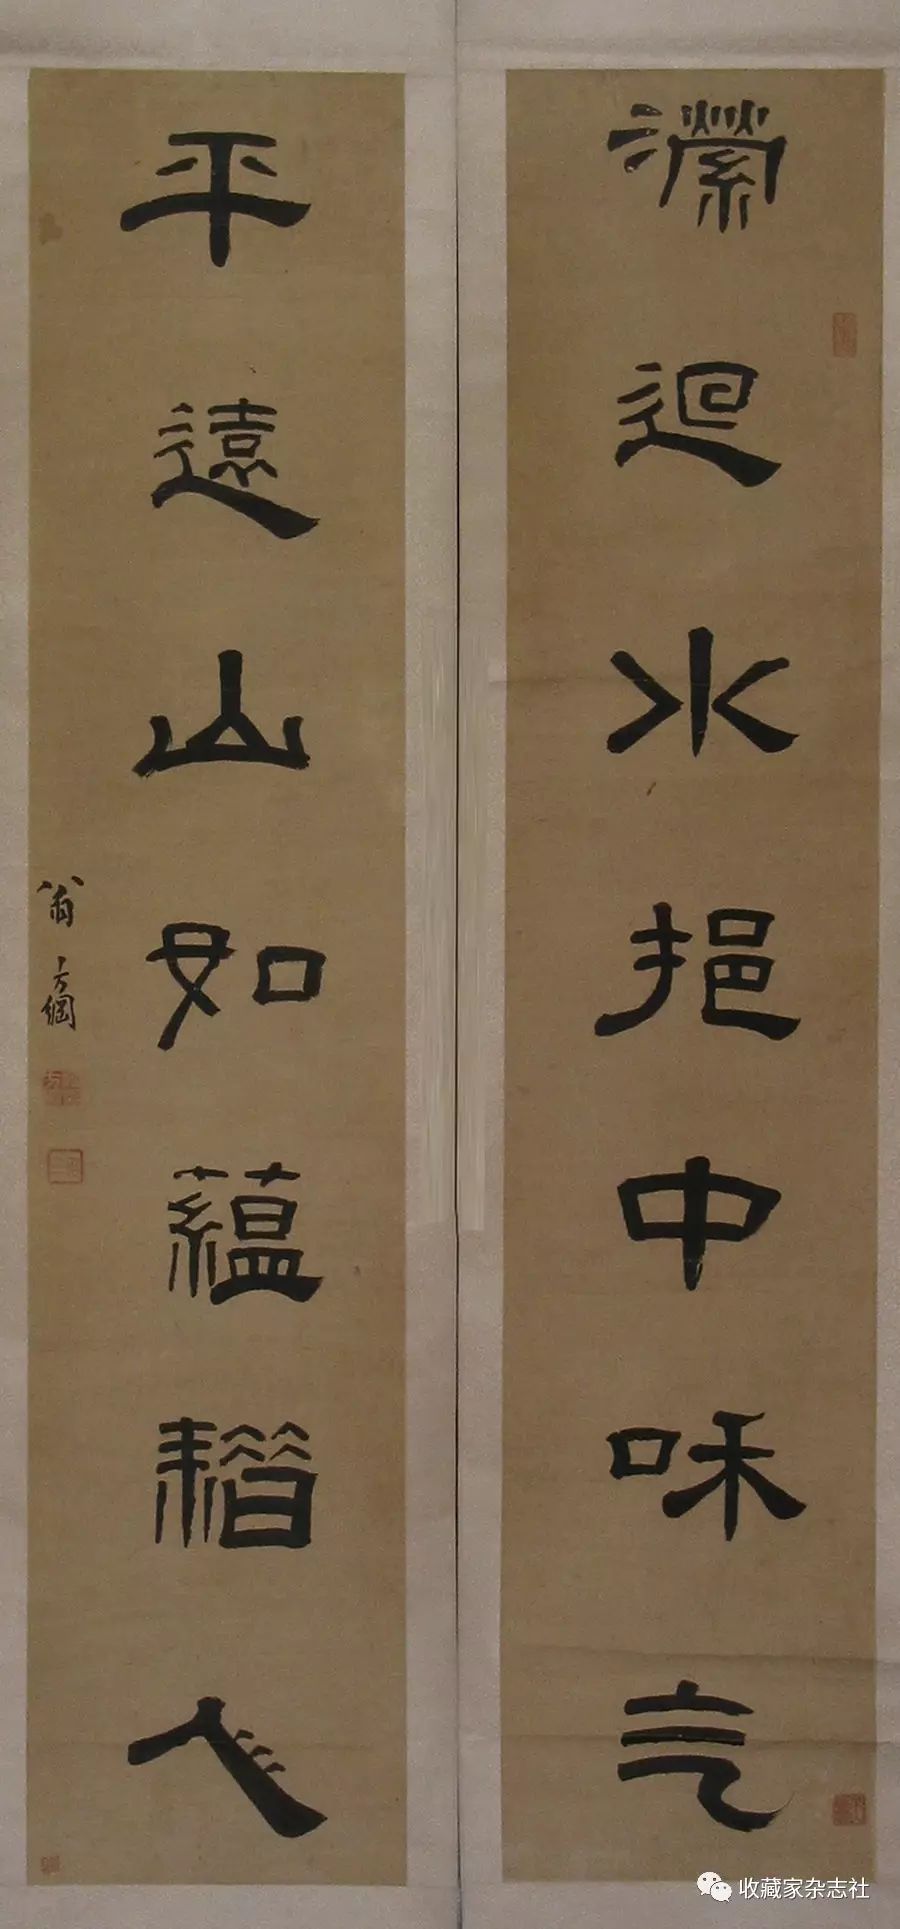 瀠迴水挹中和气
平遠山如藴藉人
翁方綱
收藏家杂志社